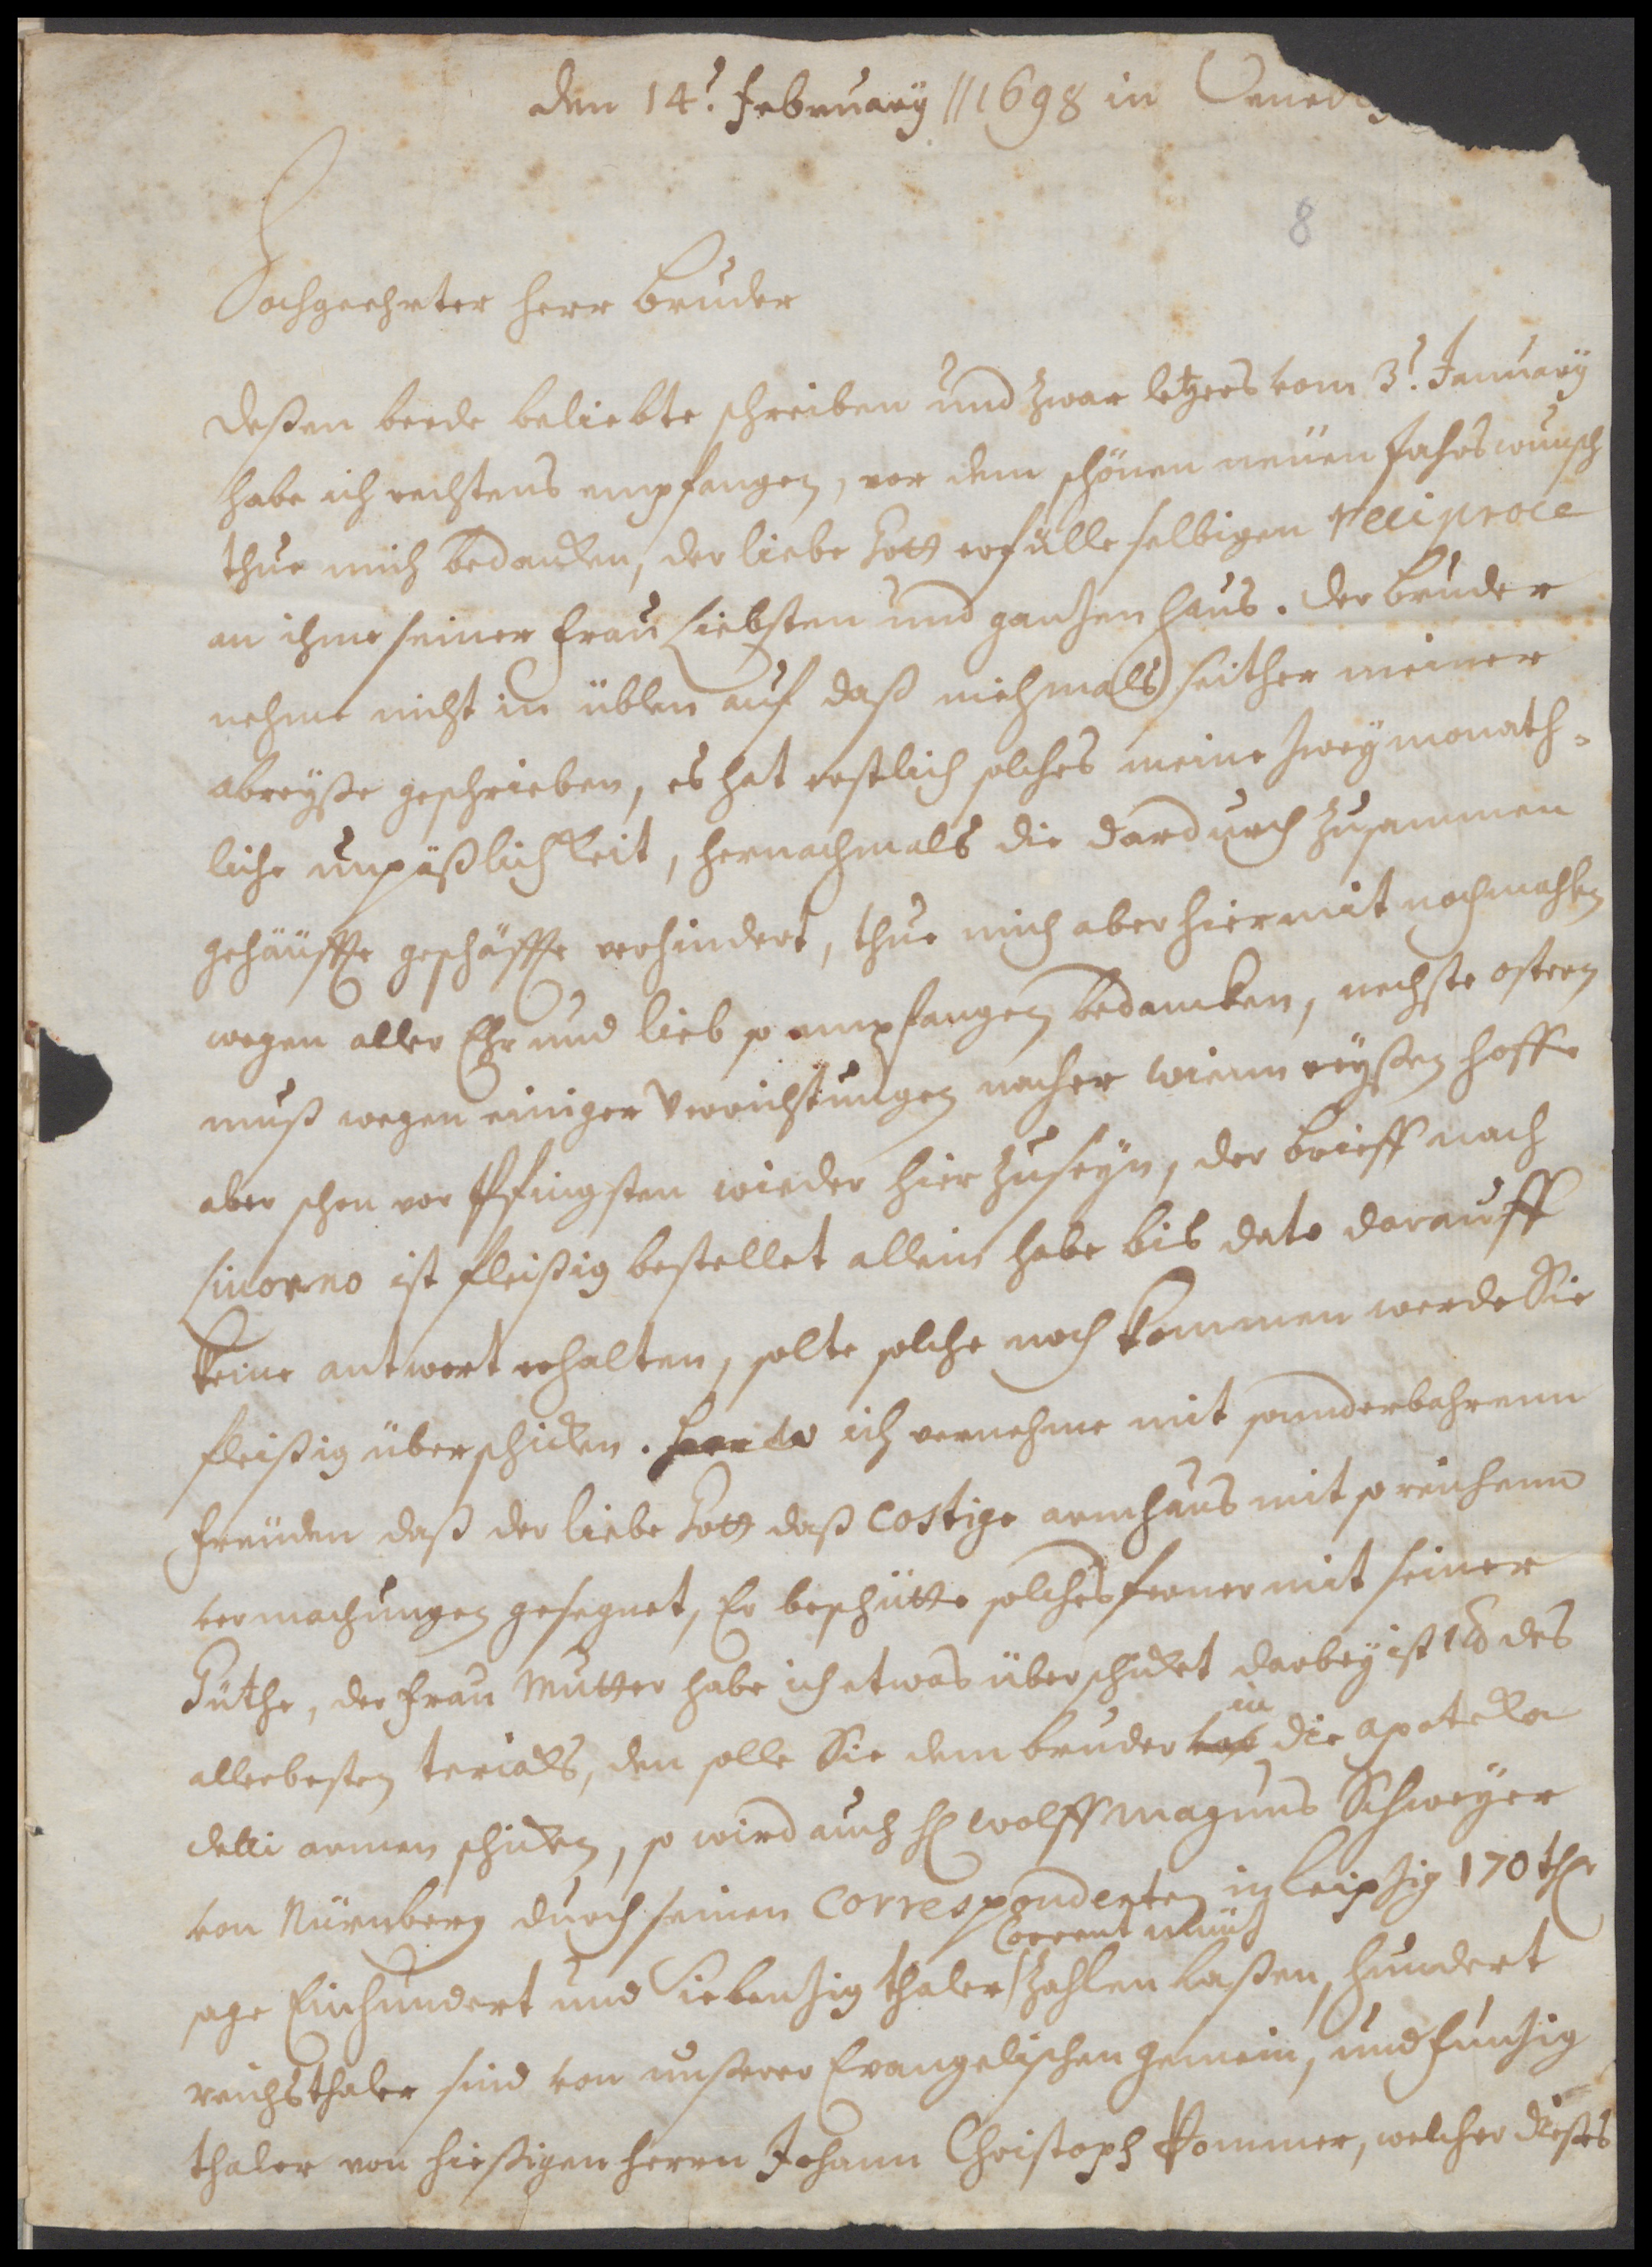 den 14ᵗ. February // 1698 in Venedig
8
Hochgeehrter Herr Bruder
Deßen beede beliebte schreiben und zwar letzers vom 3ᵗ. January
habe ich rechtens empfangen, vor dem schönen neüen Jahrs wunsch
thue mich bedancken, der liebe Gott erfülle selbigen reciproce
an ihme seiner Frau Liebsten und gantzen Haus. der Bruder
nehme nicht in üblen auf daß niehmals seither meiner
abreyße geschrieben, es hat erstlich solches meine zweymonath-
liche unpäßlichkeit, hernachmals die dardurch zusammen
gehäuffte geschäffte verhindert, thue mich aber hiermit nochmahlen
wegen aller Ehr und lieb so empfangen bedancken, nechste ostern
muß wegen einiger Verrichtungen nacher wienn reyßen hoffe
aber schon vor Pfingsten wieder hier zu seyn, der brieff nach
Livorno ist fleißig bestellet allein habe bis dato darauff
keine antwort erhalten, solte solche noch kommen werde Sie
fleißig überschicken. ich vernehme mit sonnderbahrenn
freüden daß der liebe Gott daß costige armhaus mit so reichenn
vermachungen gesegnet, Er beschütte solches ferner mit seiner
Güthe, der Frau Mutter habe ich etwas überschicket darbey ist 1 ℔ des
allerbesten teriacks, den solle Sie dem bruder in die apotecka
delli armen schicken, so wird auch H wolff magnus Schweyer
von Nürnberg durch seinen Correspondenten in leipzig 170 thr
sage Einhundert und Siebentzig thaler Corrent müntz zahlen laßen, hundert
reichsthaler sind von unßerer Evangelischen gemein, und funtzig
thaler von hießigen herrn Johann Christoph Pommer, welcher dießes